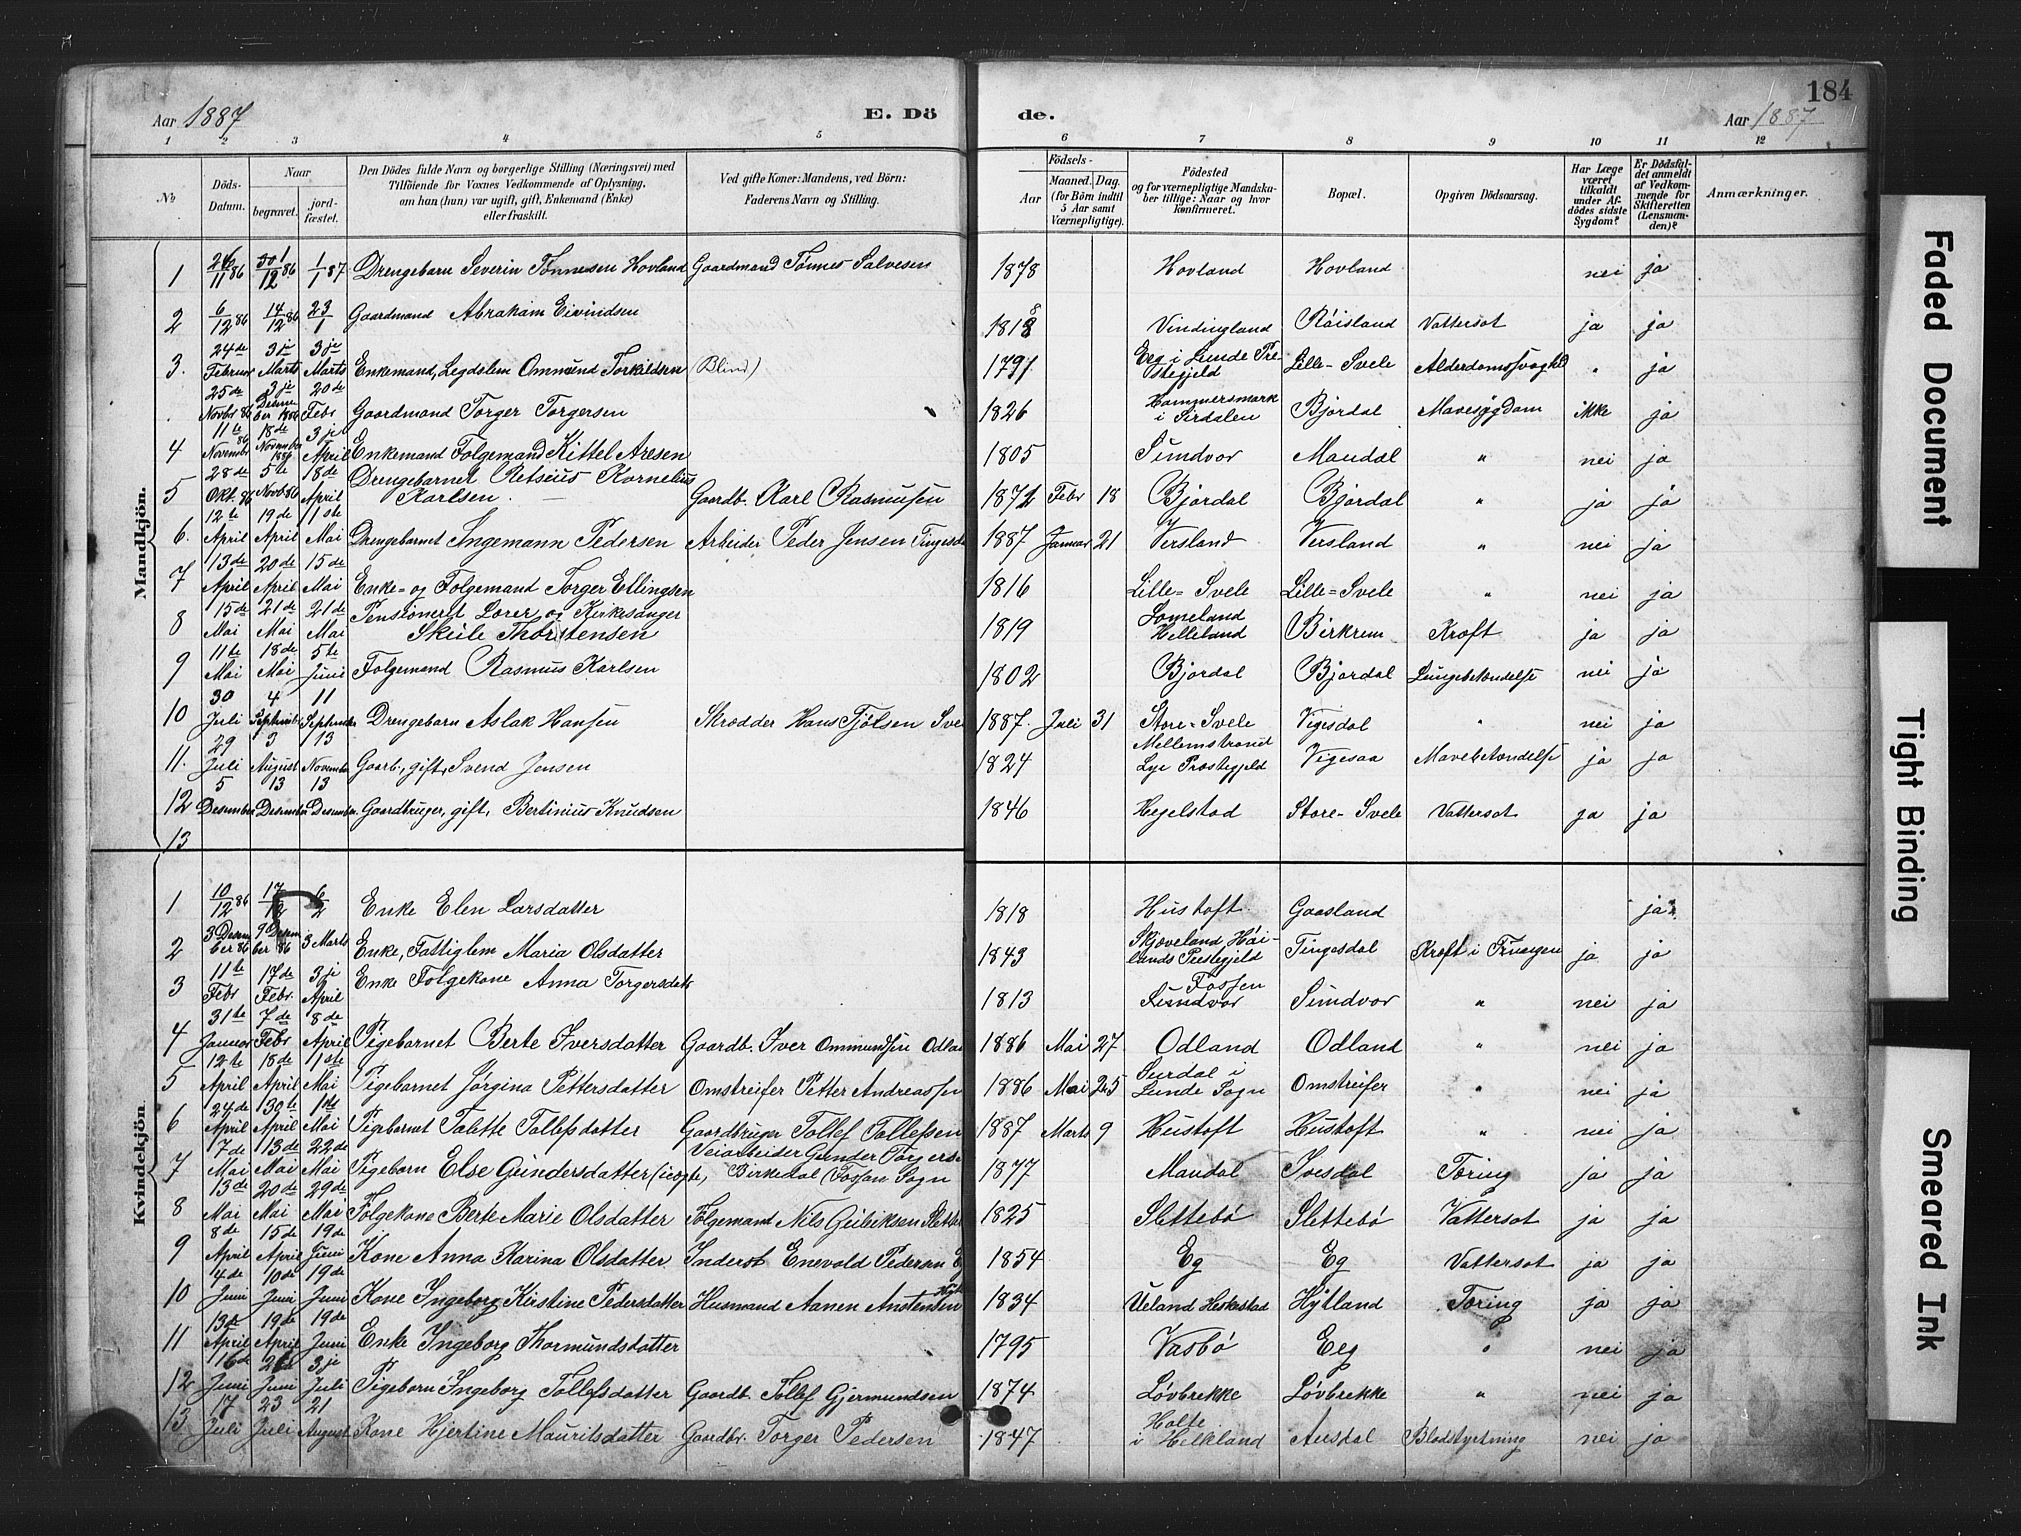 184
Aar 1887 E. Dö de. Aar 1887
1 2 3 4 5 6 7 8 9 10 11 12
No
Döds-Datum.
Naar
begravet.
jord-fæstet.
Den Dödes fulde Navn og borgerlige Stilling (Næringsvei) med
Tilföiende for Voxnes Vedkommende af Oplysning,
om han (hun) var ugift, gift, Enkemand (Enke)
eller fraskilt.
Ved gifte Koner: Mandens, ved Börn:
Faderens Navn og Stilling.
Födsels-
Aar
Maaned. Dag.
(for Börn indtil
5 Aar samt
Værnepligtige).
Födested
og for værnepligtige Mandska-
ber tillige: Naar og hvor
konfirmeret.
Bopæl.
Opgiven Dödsaarsag.
Har Læge
været
tilkaldt
under Af-
dödes sidste
Sygdom?
Er Dödsfal-
det anmeldt
af Vedkom-
mende for
Skifteretten
(Lensman-
den)?
Anmærkninger.
Mandkjön.
1 26/11 86 30/12 86 1/1 87 Drengebarn Severin Tönnesen Hovland Gaardmand Tönnes Salvesen 1878 Hovland Hovland nei ja
2 6/12 86 14/12 86 23/1 Gaardmand Abraham Eivindsen 1818 Vindingland Röisland Vattersot ja ja
3. 24de Februar 3je Marts 3je Marts Enkemand, Legdslem Ommund Torkildsen (Blind) 1791 Eeg i Lunde Præ-stegjeld Lille-Svele Alderdomssvaghed " ja
25de Novbr 86 3je Desember 1886 20de Febr Gaardmand Torger Torgersen 1826 Hammersmark i Sirdalen Bjordal Mavesygdom ikke ja
4 11te Novembr 86 18de November 1886 3je April Enkemand Folgemand Kittel Aresen 1805 Sundvor Maudal " nei ja
5 28de Okt. 86 5te Novb 86 18de April Drengebarnet Retsius Kornelius Karlsen. Gaardb. Karl Rasmussen 1872 Febr 18 Bjordal Bjordal " ja ja
6. 12te April 19de April 1ste Mai Drengebarnet Ingemann Pedersen Arbeider Peder Jensen Tingesd 1887 Januar 21 Versland Versland " nei ja
7 13de April 20de April 15de Mai Enke- og Folgemand Torger Ellingsen 1816 Lille-Svele Lille-Svele " nei ja
8 15de Mai 21de Mai 21de Mai Pensioneret Lærer og Kirkesanger Skeile Thorstensen 1819 Lomeland Helleland Birkrem Kræft ja ja
9 11te Mai 18de Mai 5te Juni Folgemand Rasmus Karlsen 1802 Bjordal Bjordal Lungebetændelse nei ja
10 30 Juli 4 Septembr 11 September Drengebarn Aslak Hansen Skrædder Hans Fjölsen Sve 1887. Juli 31 Store-Svele Vigesdal " nei ja
11. 29 Juli 3 August 13 Novembr Gaarb., gift, Svend Jensen 1824 Mellemstrand Lye Præstegjeld Vigesaa Mavebetændelse ja ja
12 5 Desember 13 Desember 13 Desember. Gaardbruger, gift, Bertinius Knudsen 1846 Hegelstad Store-Svele Vattersot ja ja
13
Kvindekjön.
1 10/12 86 17/12 6/2 Enke Elen Larsdatter 1818 Hustoft Gaasland ja
2 3 Desember 86 9 Desember 86 3 Marts Enke, Fattiglem Maria Olsdatter 1843 Skjæveland Höi-lands Præstegjeld Tingesdal Kræft i Tungen ja ja
3 11te Febr 17de Febr. 3je April Enke Folgekone Anna Torgersdatr 1813 Fossen Sundvor Sundvor " nei ja
4 31te Januar 7de Febr 8de April Pigebarnet Berte Iversdatter Gaardb. Iver Ommundsen Odlan 1886 Mai 27 Odland Odland " nei ja
5 12te April 18de April 1ste Mai Pigebarnet Jörgina Pettersdatter Omstreifer Petter Andreassen 1886 Mai 25 Surdal i Lunde Sogn Omstreifer " nei ja
6 24de April 30te April 1ste Mai Pigebarnet Talette Tollefsdatter Gaardbruger Tollef Tollefsen 1887 Marts 9 Hustoft Hustoft " nei ja
7 7de Mai 13de Mai 22de Mai Pigebarn Else Gundersdatter Veiarbeider Gunder Torgers. Birkedal (Fossan Sogn 1877 Maudal Ivesdal Tæring ja ja
8 13de Mai 20de Mai 29de Mai Folgekone Berte Marie Olsdatter Folgemand Nils Gulieksen Slettb 1825 Slettebö Slettebö Vattersot ja ja
9 8de April 15de April 19de Juni Kone Anna Karina Olsdatter Inderst Enevold Pedersen Eg 1854 Eg Eg Vattersot ja ja
10 4de Juni 10de Juni 19de Juni Kone Ingeborg Kirstine Pedersdatter Husmand Aanen Anstensen 1834 Ueland Heskestad Hytland Tæring ja ja
11 13de April 19de April 19de Juni Enke Ingeborg Thormundsdatter 1795 Vasbö Eeg " nei ja
12 16de Juni 26 Juni 3je Juli Pigebarn Ingeborg Tollefsdatter Gaardb. Tollef Gjermundsen 1874 Lövbrekke Lövbrekke " nei ja
13 17 Juli 23 Juli 21 August Kone Hjertine Mauritsdatter Gaardbr. Torger Pedersen 1847 Holte i Helleland Ausdal Blodstyrtning nei ja
Faded Document
Tight Binding
Smeared Ink